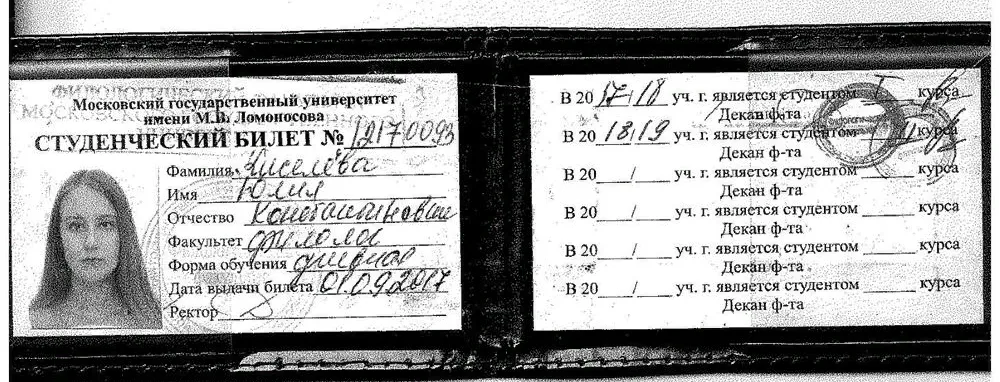 ФИЛОЛОГИЧЕСКИЙ
Московский государственный университет
имени М.В. Ломоносова
СТУДЕНЧЕСКИЙ БИЛЕТ № 12170093
Фамилия Киселёва
Имя Юлия
Отчество Константиновна
Факультет филолог
Форма обучения дневная
Дата выдачи билета 01.09.2017
Ректор
В 20 17/18 уч. г. является студентом I курса
Декан ф-та
В 20 18/19 уч. г. является студентом II курса
Декан ф-та
В 20___/___ уч. г. является студентом ______ курса
Декан ф-та
В 20___/___ уч. г. является студентом ______ курса
Декан ф-та
В 20___/___ уч. г. является студентом ______ курса
Декан ф-та
В 20___/___ уч. г. является студентом ______ курса
Декан ф-та